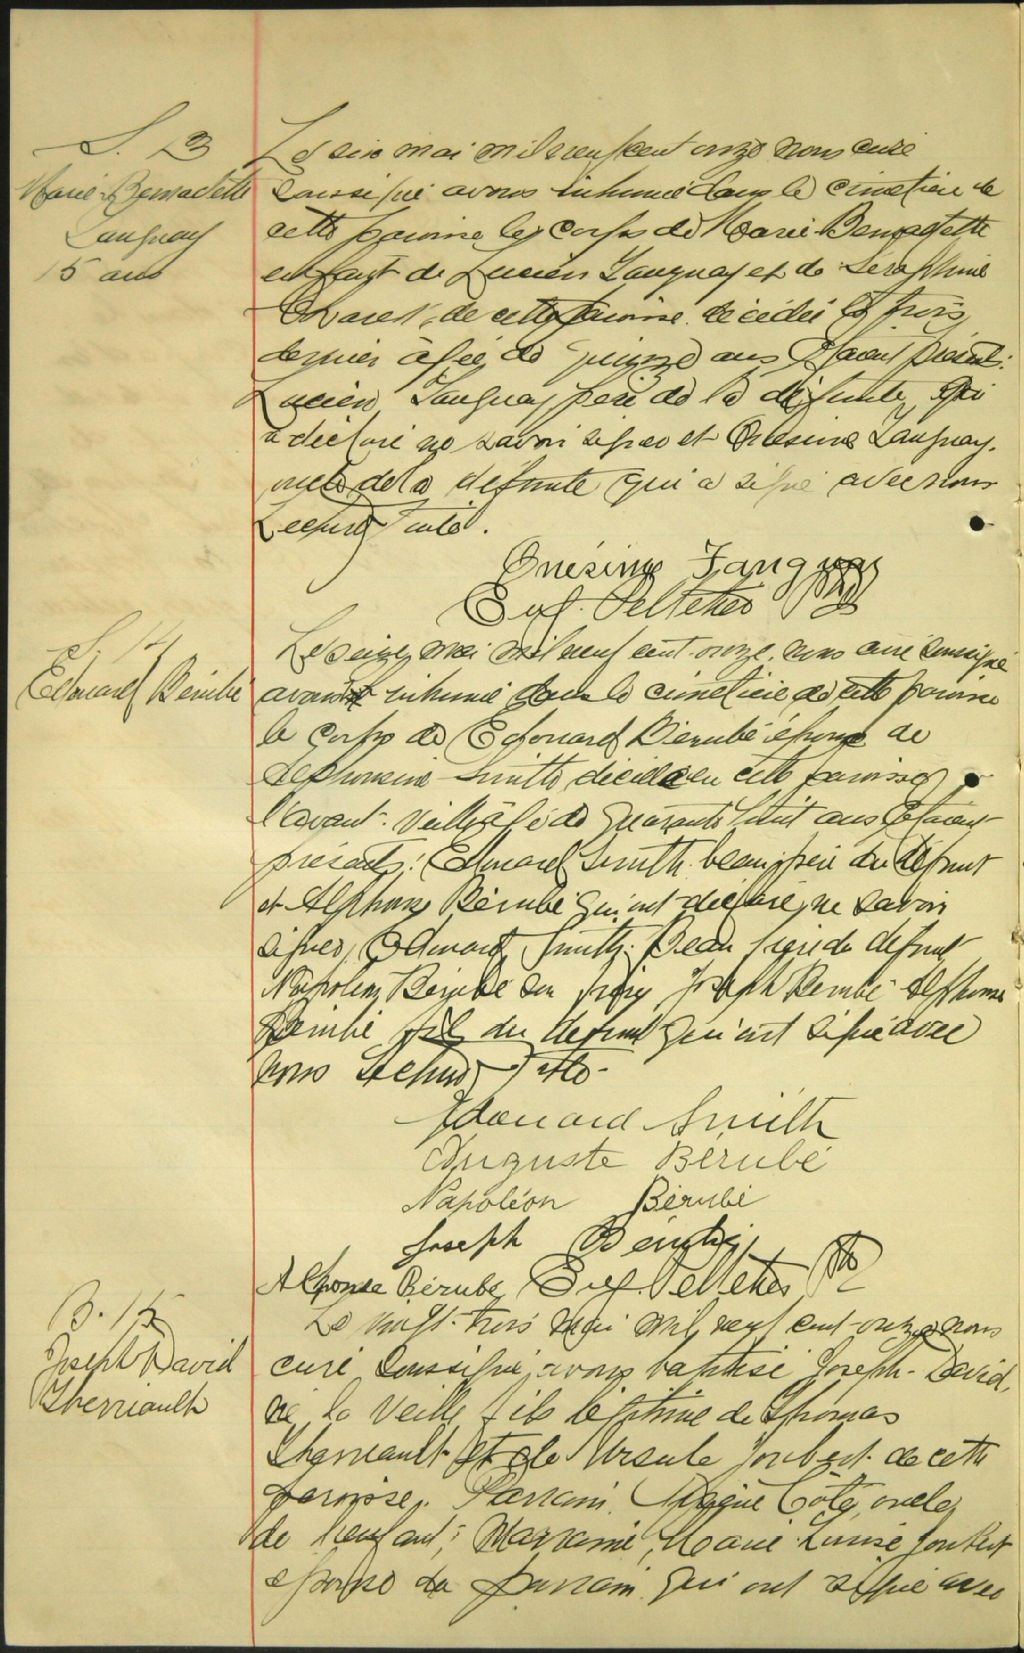 S. 13
Marie-Bernadette
Tanguay
15 ans
Le six mai mil neuf cent onze nous curé
soussigné avons inhumé dans le cimetière de
cette paroisse le corps de Marie-Bernadette
enfant de Lucien Tanguay et de Séraphine
de cette paroisse décédée le trois
dernier âgée de quinze ans Etaient présents:
Lucien Tanguay père de la défunte qui
a déclaré ne savoir signer et Onésime Tanguay
oncle de la défunte qui a signé avec nous
Lecture faite.
Onésime Tanguay
Eug. Pelletier Ptre
S. 14
Edouard Bérubé
Le seize mai mil neuf cent onze, nous curé soussigné
avons inhumé dans le cimetière de cette paroisse
le corps de Edouard Bérubé époux de
Alphonsine Smith décédé en cette paroisse
l'avant-veille âgé de quarante huit ans Etaient
présents: Edouard Smith beau-père du défunt
et Alphonse Bérubé qui ont déclaré ne savoir
signer, Edouard Smith beau frère du défunt
Napoléon Bérubé son frère Joseph Bérubé Alphonse
Bérubé fils du défunt qui ont signé avec
nous Lecture faite.
Edouard Smith
Auguste Bérubé
Napoléon Bérubé
Joseph Bérubé
Alphonse Bérubé Eug. Pelletier Ptre
B. 15
Joseph David
Therriault
Le vingt-trois mai mil neuf cent onze nous
curé soussigné avons baptisé Joseph-David,
né la veille fils légitime de Thomas
Therriault et de Ursule Joubert de cette
paroisse. Parrain Côté, oncle
de l'enfant; Marraine, Marie Louise Joubert
épouse du parrain qui ont signé avec